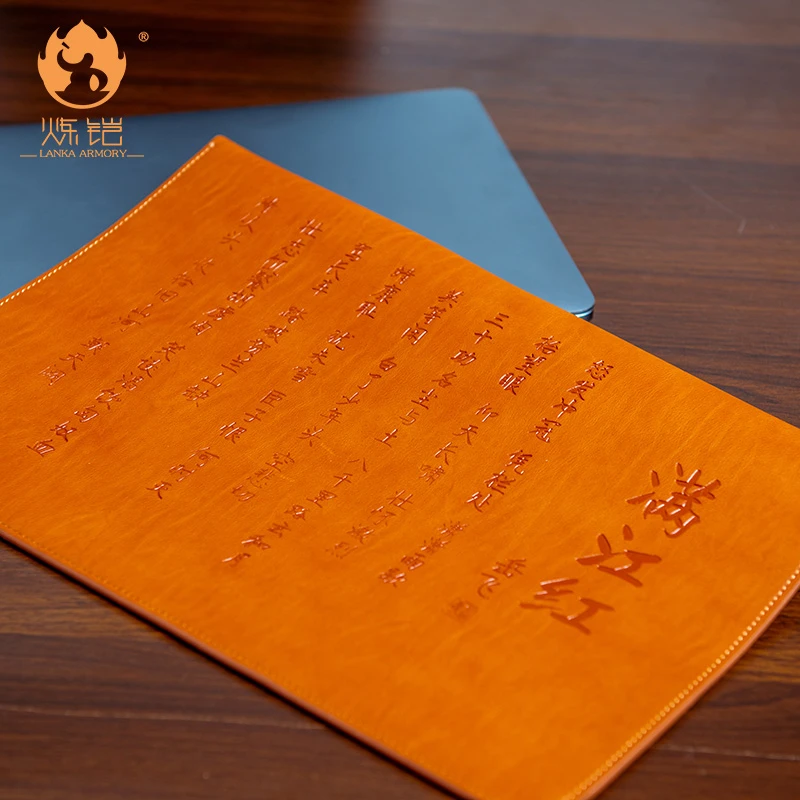 烁铠
®
LANKA ARMORY
满江红
岳飞
怒发冲冠 凭栏处 潇潇雨歇
抬望眼 仰天长啸 壮怀激烈
三十功名尘与土 八千里路云和月
莫等闲 白了少年头 空悲切
靖康耻 犹未雪 臣子恨 何时灭
驾长车 踏破贺兰山缺
壮志饥餐胡虏肉 笑谈渴饮匈奴血
待从头 收拾旧山河 朝天阙